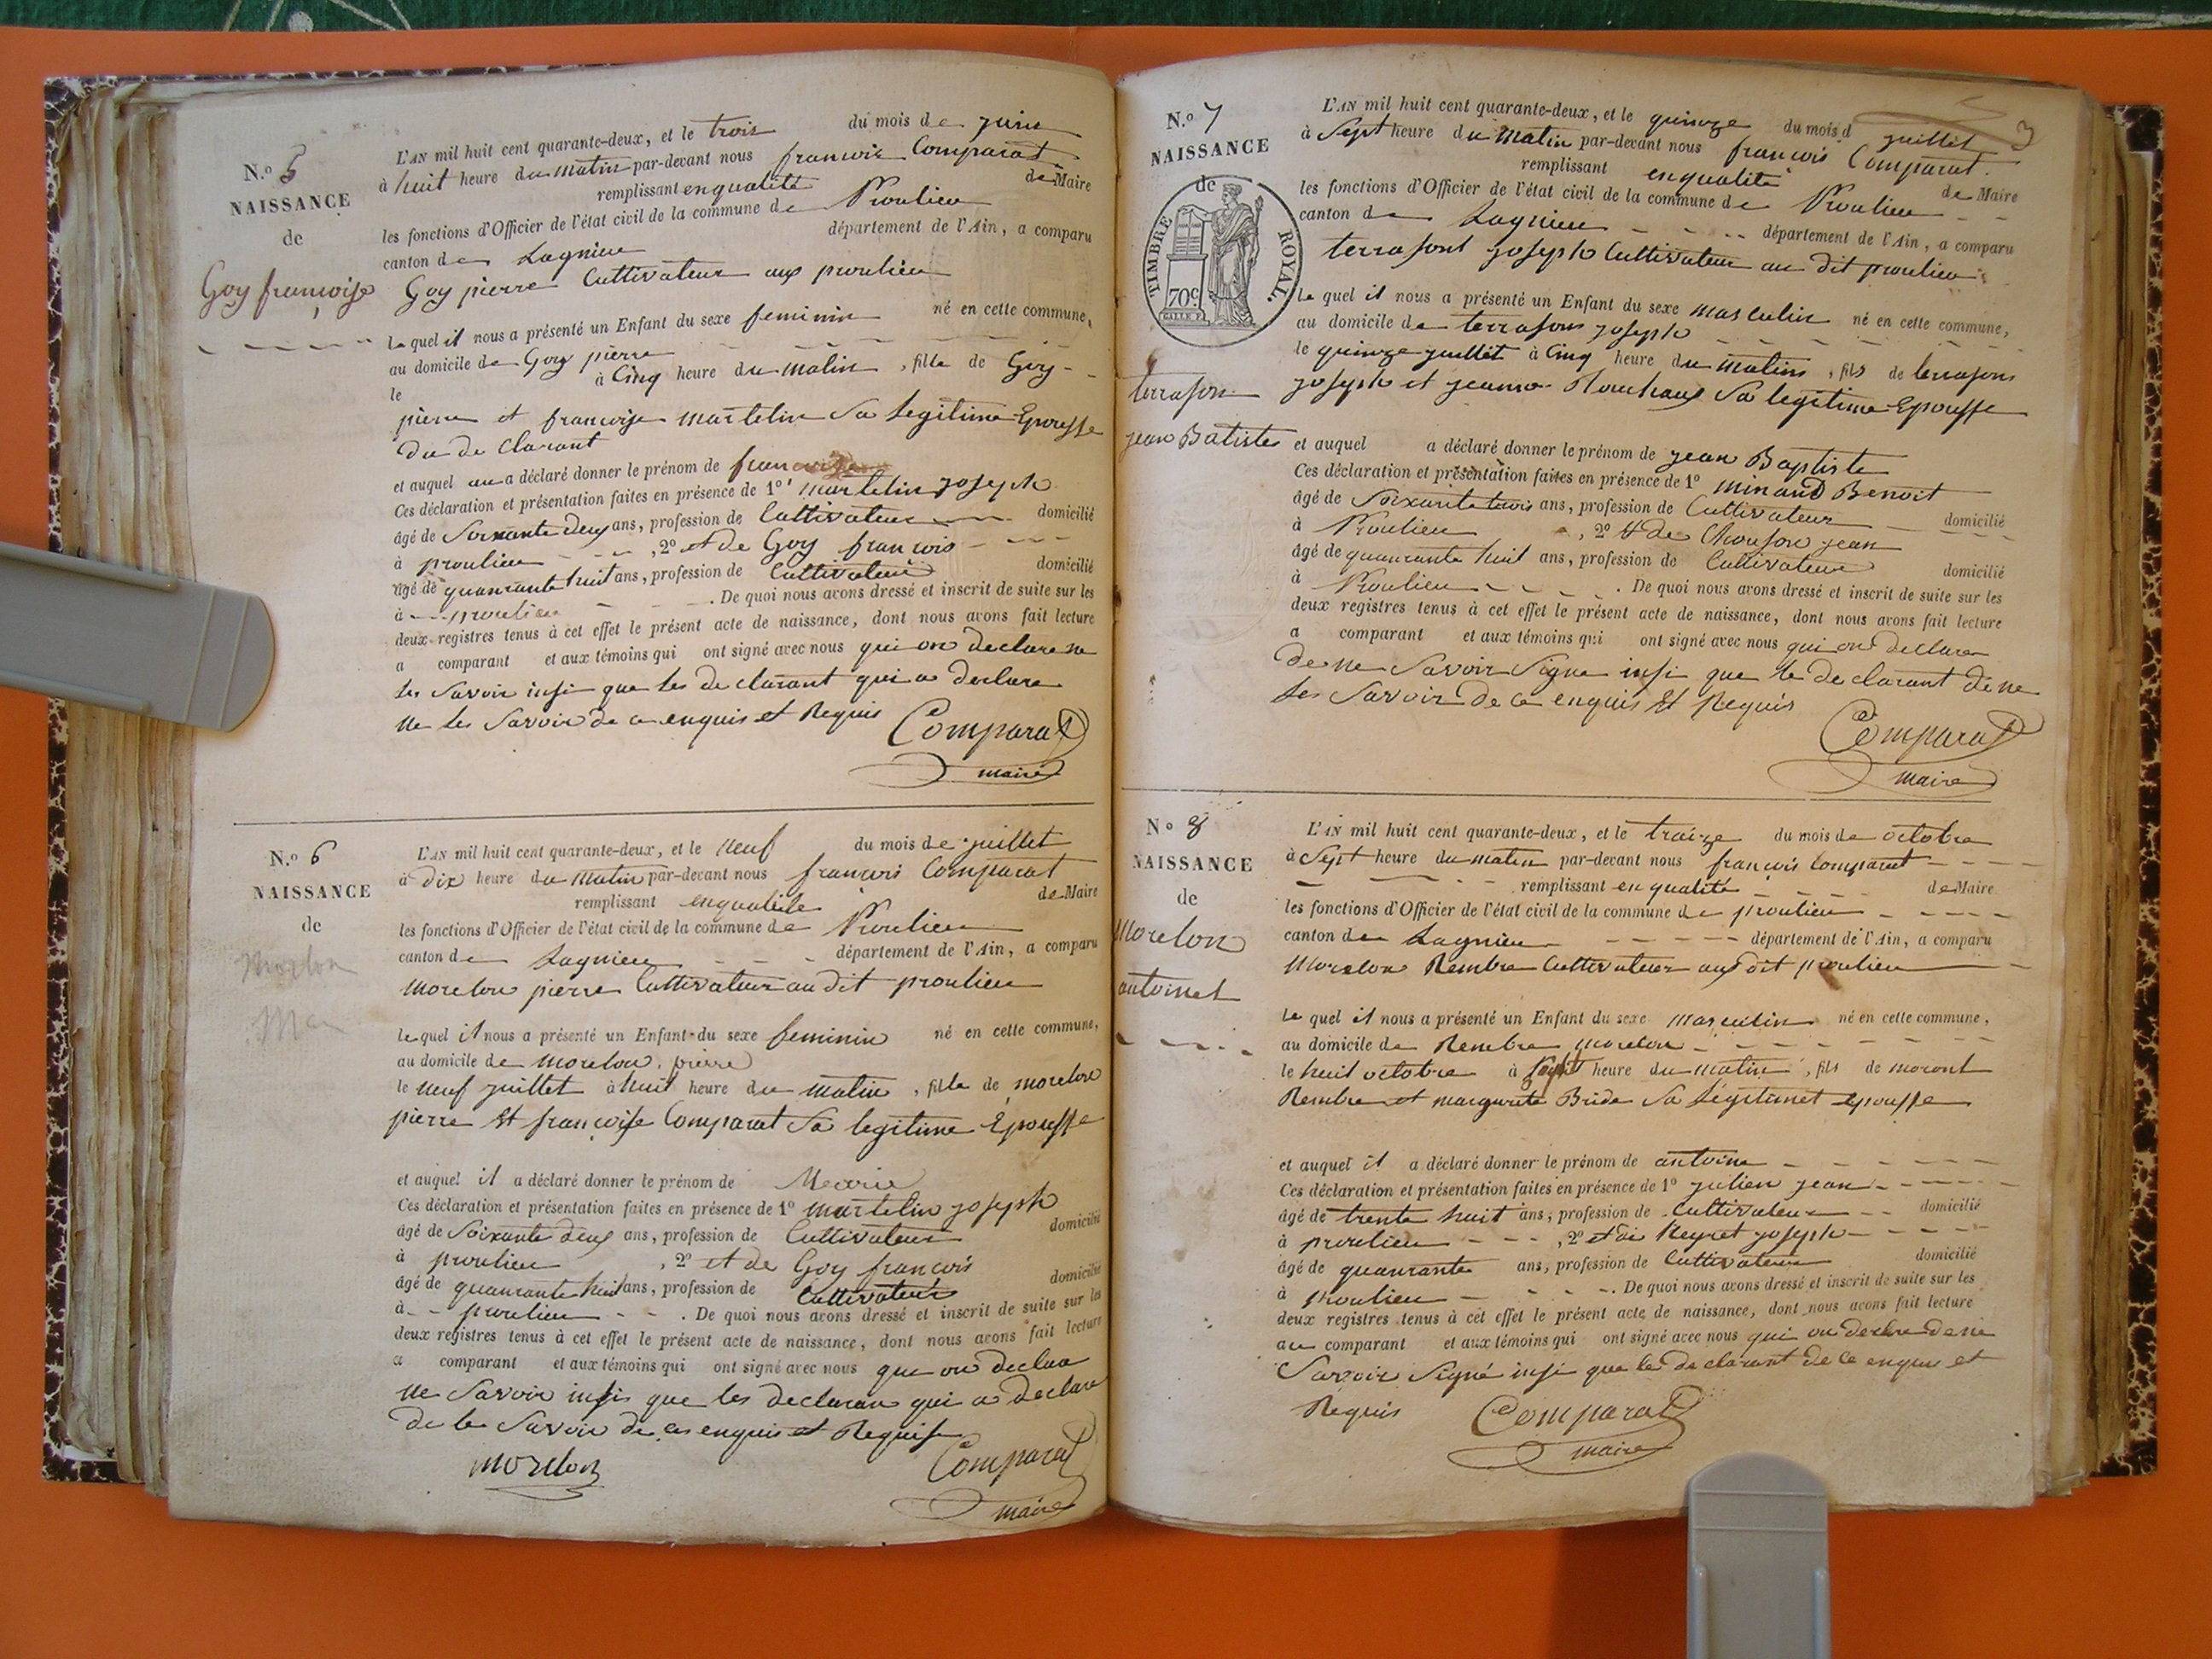 N.o 5
NAISSANCE
de
Goy françoise
L'AN mil huit cent quarante-deux, et le trois du mois de juin
à huit heure du matin par-devant nous francois Comparat
remplissant en qualité de Maire
les fonctions d'Officier de l'état civil de la commune de Proulieu
canton de Lagnieu département de l'Ain, a comparu
Goy pierre Cultivateur aux proulieu
le quel il nous a présenté un Enfant du sexe feminin né en cette commune,
au domicile de Goy pierre
le à Cinq heure du matin, fille de Goy
pierre et françoise martelin Sa legitime Epousse
du de clarant
et auquel au a déclaré donner le prénom de francoise
Ces déclaration et présentation faites en présence de 1o martelin joseph
âgé de Soixante deux ans, profession de Cultivateur domicilié
à proulieu , 2o et de Goy francois
âgé de quarante huit ans, profession de Cultivateur domicilié
à proulieu . De quoi nous avons dressé et inscrit de suite sur les
deux registres tenus à cet effet le présent acte de naissance, dont nous avons fait lecture
a comparant et aux témoins qui ont signé avec nous qui on declare ne
les Savoir insi que les de clarant qui a declare
ne les Savoir de ce enquis et Requis Comparat
maire
N.o 6
NAISSANCE
de
Morelon
Ma
L'AN mil huit cent quarante-deux, et le neuf du mois de juillet
à dix heure du matin par-devant nous francois Comparat
remplissant en qualité de Maire
les fonctions d'Officier de l'état civil de la commune de Proulieu
canton de Lagnieu département de l'Ain, a comparu
morelon pierre Cultivateur au dit proulieu
le quel il nous a présenté un Enfant du sexe feminin né en cette commune,
au domicile de morelon pierre
le neuf juillet à huit heure du matin, fille de morelon
pierre Et françoise Comparat Sa legitime Epousse
et auquel il a déclaré donner le prénom de Marie
Ces déclaration et présentation faites en présence de 1o martelin joseph
âgé de Soixante deux ans, profession de Cultivateur domicilié
à proulieu , 2o et de Goy francois
âgé de quarante huit ans, profession de Cultivateur domicilié
à proulieu . De quoi nous avons dressé et inscrit de suite sur les
deux registres tenus à cet effet le présent acte de naissance, dont nous avons fait lecture
a comparant et aux témoins qui ont signé avec nous que on declare
ne Savoir insi que les declaran qui a declare
de le Savoir de ces enquis et Requis
morelon Comparat
maire
3
N.o 7
NAISSANCE
de
TIMBRE ROYAL.
70c
terrason
jean Batiste
L'AN mil huit cent quarante-deux, et le quinze du mois d juillet
à Sept heure du matin par-devant nous francois Comparat
remplissant en qualité de Maire
les fonctions d'Officier de l'état civil de la commune de Proulieu
canton de Lagnieu département de l'Ain, a comparu
terrasont joseph Cultivateur au dit proulieu
le quel il nous a présenté un Enfant du sexe masculin né en cette commune,
au domicile de terrason joseph
le quinze juillet à Cinq heure du matin, fils de terrason
joseph et jeanne Sa legitime Epousse
et auquel a déclaré donner le prénom de jean Baptiste
Ces déclaration et présentation faites en présence de 1o minand Benoit
âgé de Soixante trois ans, profession de Cultivateur domicilié
à Proulieu , 2o et de jean
âgé de quarante huit ans, profession de Cultivateur domicilié
à Proulieu . De quoi nous avons dressé et inscrit de suite sur les
deux registres tenus à cet effet le présent acte de naissance, dont nous avons fait lecture
a comparant et aux témoins qui ont signé avec nous qui on declare
de ne Savoir Signe insi que le de clarant de ne
les Savoir de ce enquis Et Requis
Comparat
maire
No 8
NAISSANCE
de
Morelon
antoinet
L'AN mil huit cent quarante-deux, et le traize du mois de octobre
à Sept heure du matin par-devant nous francois Comparat
remplissant en qualité de Maire
les fonctions d'Officier de l'état civil de la commune de proulieu
canton de Lagnieu département de l'Ain, a comparu
Morelon Rembre Cultivateur au dit proulieu
le quel il nous a présenté un Enfant du sexe masculin né en cette commune,
au domicile de Rembre morelon
le huit octobre à Sept heure du matin, fils de moront
Rembre et marguerite Bride Sa légitimet epousse
et auquel il a déclaré donner le prénom de antoine
Ces déclaration et présentation faites en présence de 1o julien jean
âgé de trente huit ans, profession de Cultivateur domicilié
à proulieu , 2o et de Reyret joseph
âgé de quarante ans, profession de Cultivateur domicilié
à proulieu . De quoi nous avons dressé et inscrit de suite sur les
deux registres tenus à cet effet le présent acte de naissance, dont nous avons fait lecture
au comparant et aux témoins qui ont signé avec nous qui on declare de ne
Savoir Signé insi que le de clarant de ce enquis et
Requis Comparat
maire